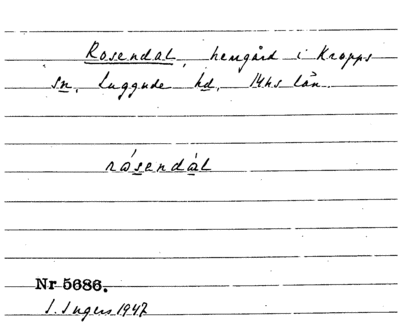 Rosendal, herrgård i Kropps
sn, Luggude hd, Mhs län.
ròsendál
Nr 5686.
I. Ingers 1947